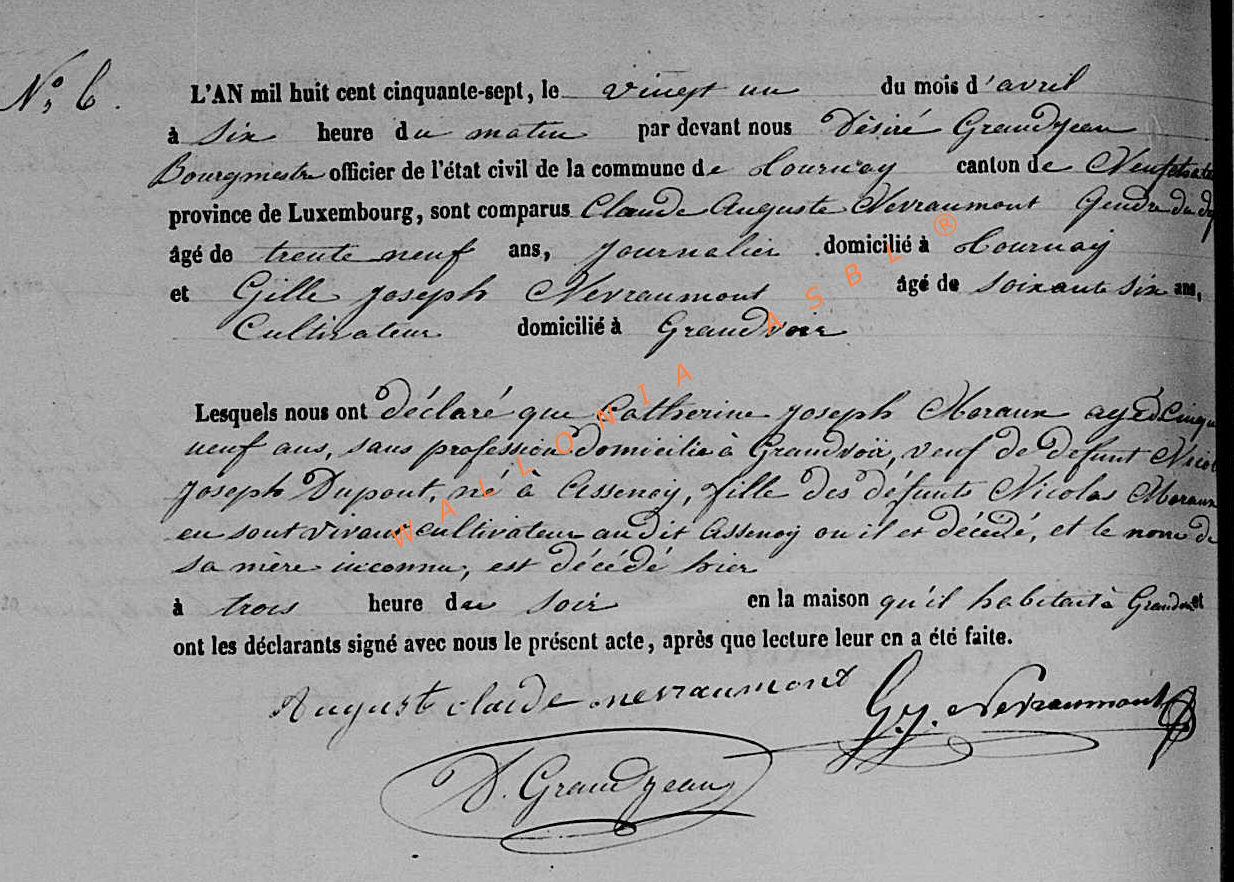 N°. 6.
L'AN mil huit cent cinquante-sept, le vingt un du mois d'avril
à six heure du matin par devant nous Désiré Grandjean
Bourgmestre officier de l'état civil de la commune de Tournay canton de Neufchate
province de Luxembourg, sont comparus Claude Auguste Nevraumont Gendre du
âgé de trente neuf ans, journalier domicilié à Tournay
et Gille Joseph Nevraumont âgé de soixante six ans,
Cultivateur domicilié à Grandvoir
Lesquels nous ont déclaré que Catherine Joseph Maraux agé d cinqu
neuf ans, sans profession domicilié à Grandvoir, veuf de defunt Nicol
Joseph Dupont, né à Assenoy, fille des défunts Nicolas Maraux
en sont vivant cultivateur au dit Assenoy ou il et décédé, et le nom de
sa mère inconnu, est décédé hier
à trois heure du soir en la maison qu'il habitait à Grandvoi et
ont les déclarants signé avec nous le présent acte, après que lecture leur en a été faite.
August claude nevraumont G. J. Nevraumont
D. Grandjean
WALLONIA ASBL ®